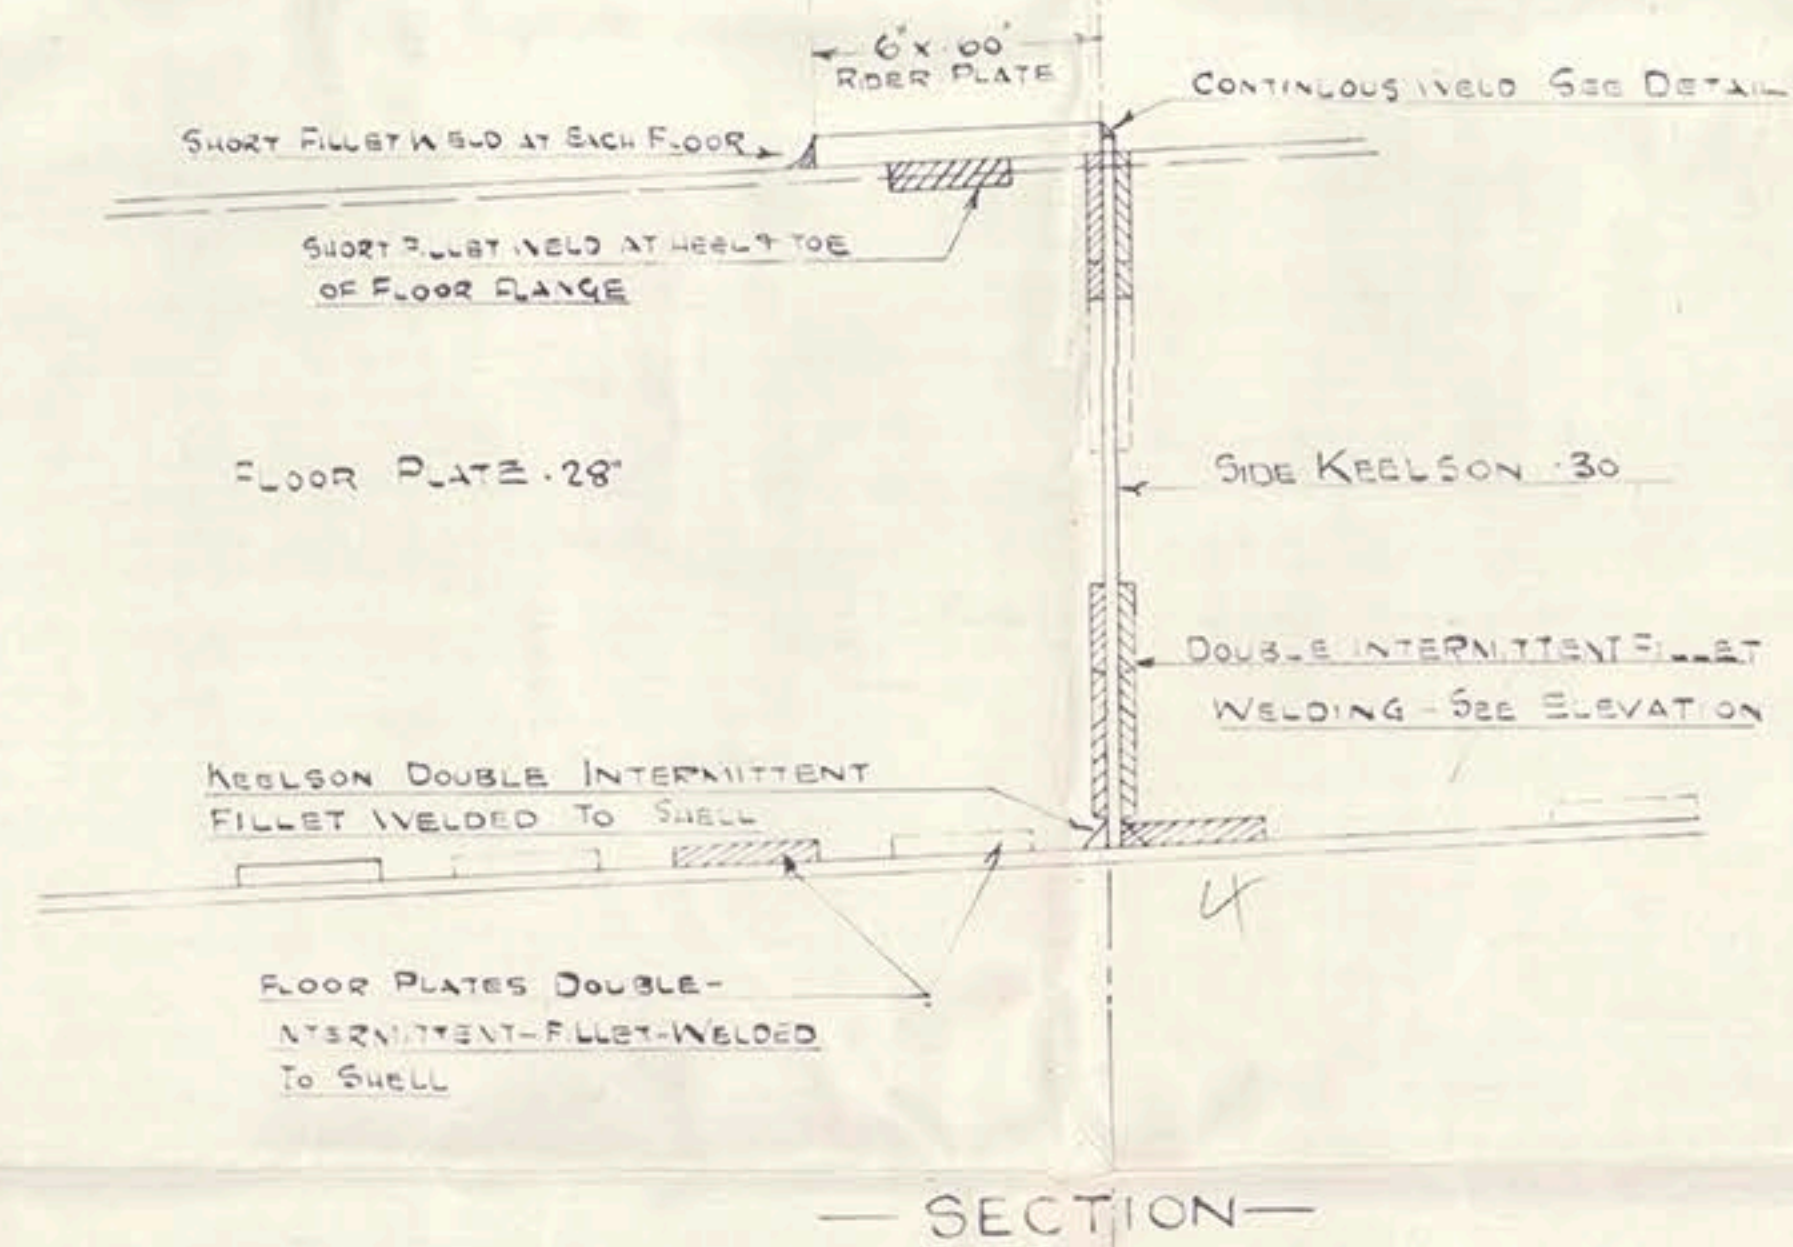 6" x .60"
RIDER PLATE
CONTINUOUS WELD SEE DETAIL
SHORT FILLET WELD AT EACH FLOOR
SHORT FILLET WELD AT HEEL & TOE
OF FLOOR FLANGE
FLOOR PLATE .28"
SIDE KEELSON .30
DOUBLE INTERMITTENT FILLET
WELDING - SEE ELEVATION
KEELSON DOUBLE INTERMITTENT
FILLET WELDED TO SHELL
4
FLOOR PLATES DOUBLE-
INTERMITTENT-FILLET-WELDED
TO SHELL
— SECTION —